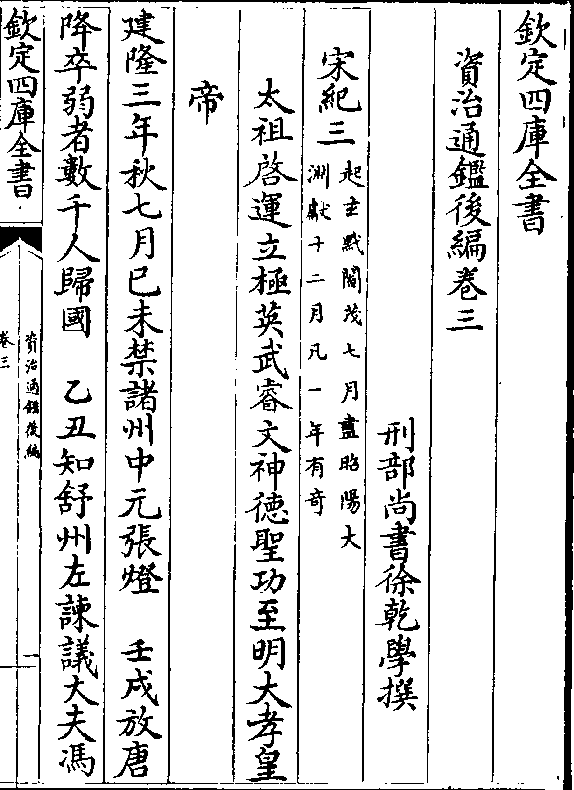 欽定四庫全書
資治通鑑後編卷三
刑部尚書徐乾學撰
宋紀三起玄黓閹茂七月盡昭陽大
淵獻十二月凡一年有奇
太祖啓運立極英武睿文神德聖功至明大孝皇
帝
建隆三年秋七月已未禁諸州中元張燈 壬戌放唐
降卒弱者數千人歸國 乙丑知舒州左諫議大夫馮
欽定四庫全書
資治通鑑後編
卷三
一